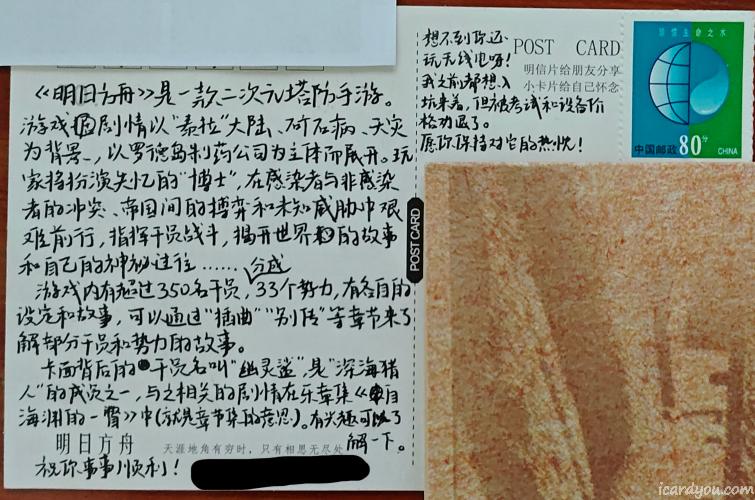 《明日方舟》是一款二次元塔防手游。
游戏剧情以"泰拉"大陆、矿石病、天灾
为背景,以罗德岛制药公司为主体而展开。玩
家将扮演失忆的"博士",在感染者与非感染
者的冲突、帝国间的搏弈和未知威胁中艰
难前行,指挥干员战斗,揭开世界的故事
和自己的神秘过往……
游戏内有超过350名干员,分成33个势力,有各自的
设定和故事,可以通过"插曲""别传"等章节来了
解部分干员和势力的故事。
卡面背后的干员名叫"幽灵鲨",是"深海猎
人"的成员之一,与之相关的剧情在乐章集《自
海渊的一瞥》中(就是章节集的意思)。有兴趣可以了
解一下。
明日方舟
天涯地角有穷时,只有相思无尽处
祝你事事顺利!
想不到你还
玩无线电呀!
我之前都想入
坑来着,但被考试和设备价
格劝退了。
愿你保持对它的热忱!
POST CARD
明信片给朋友分享
小卡片给自己怀念
POST CARD
珍惜生命之水
中国邮政 80分 CHINA
icardyou.com